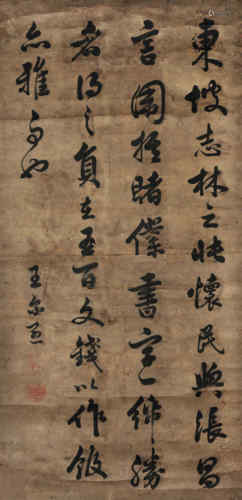 東坡志林云懷民與張昌
言圍棋賭僕書字一紙勝
者得之負出五百文錢以作飯
亦雅事也
王爾烈